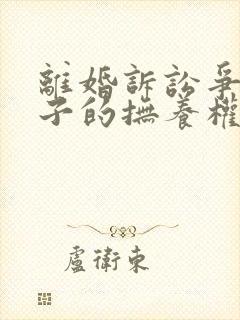 離婚訴訟爭
子的撫養權
盧衛東